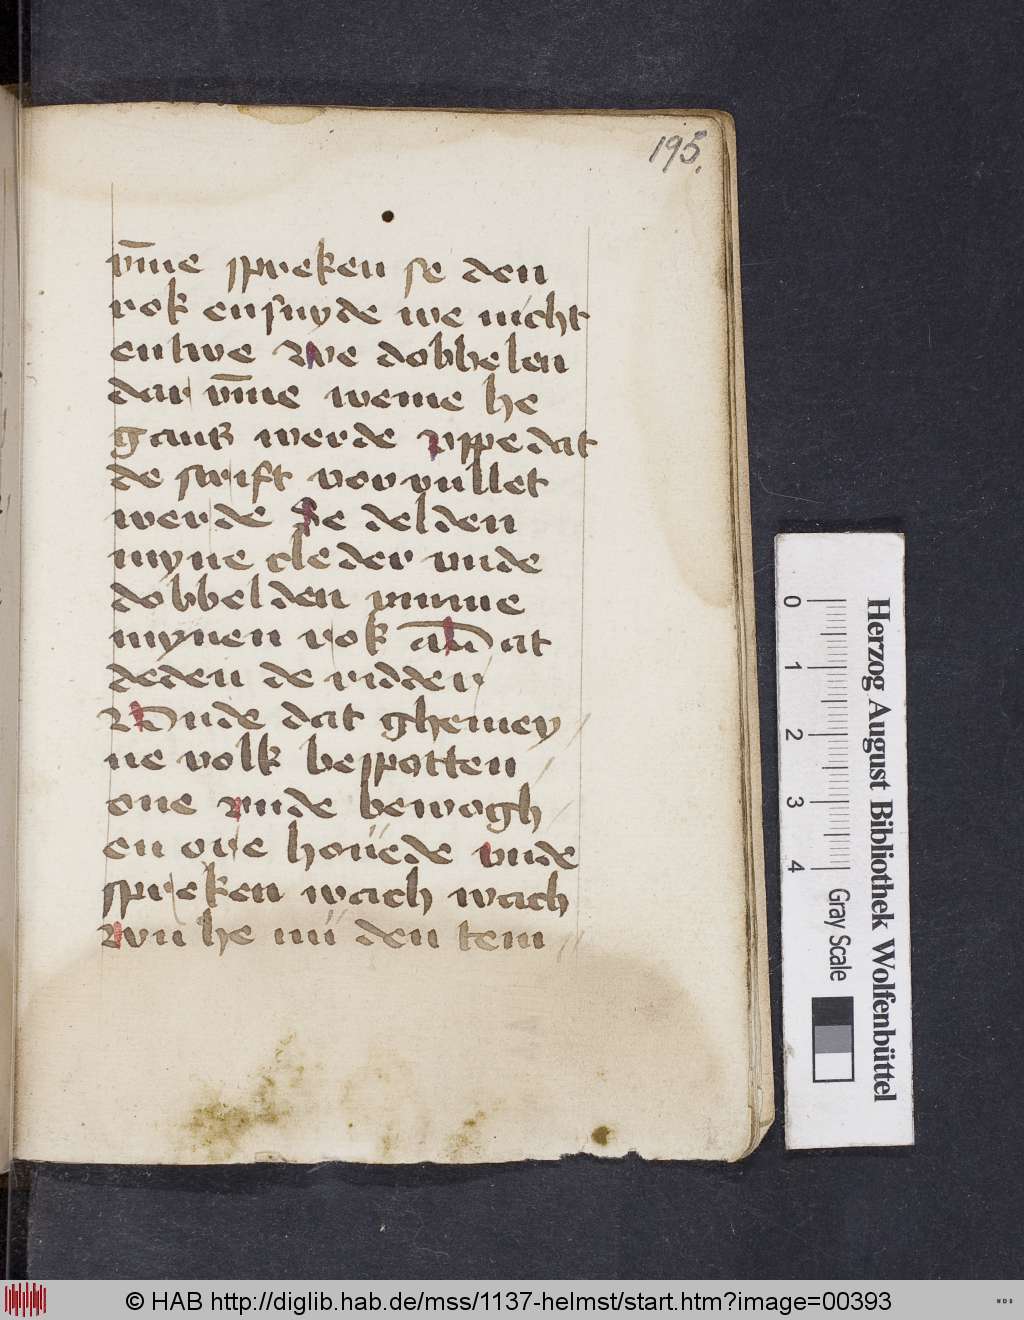 195.
v̄me spreken se den
rok ensnyde we nicht
entwe We dobbelen
dar v̄me weme he
gantz werde vppe dat
de scrift vorvullet
werde Se delden
myne cleder vnde
dobbelden vmme
mynen rok Dat
deden de ridder
Vnde dat ghemey
ne volk bespotten
one vnde bewogh
en ore houede vnde
spreken wach wach
wu he nu den tem
0 1 2 3 4
Herzog August Bibliothek Wolfenbüttel
Gray Scale
© HAB http://diglib.hab.de/mss/1137-helmst/start.htm?image=00393